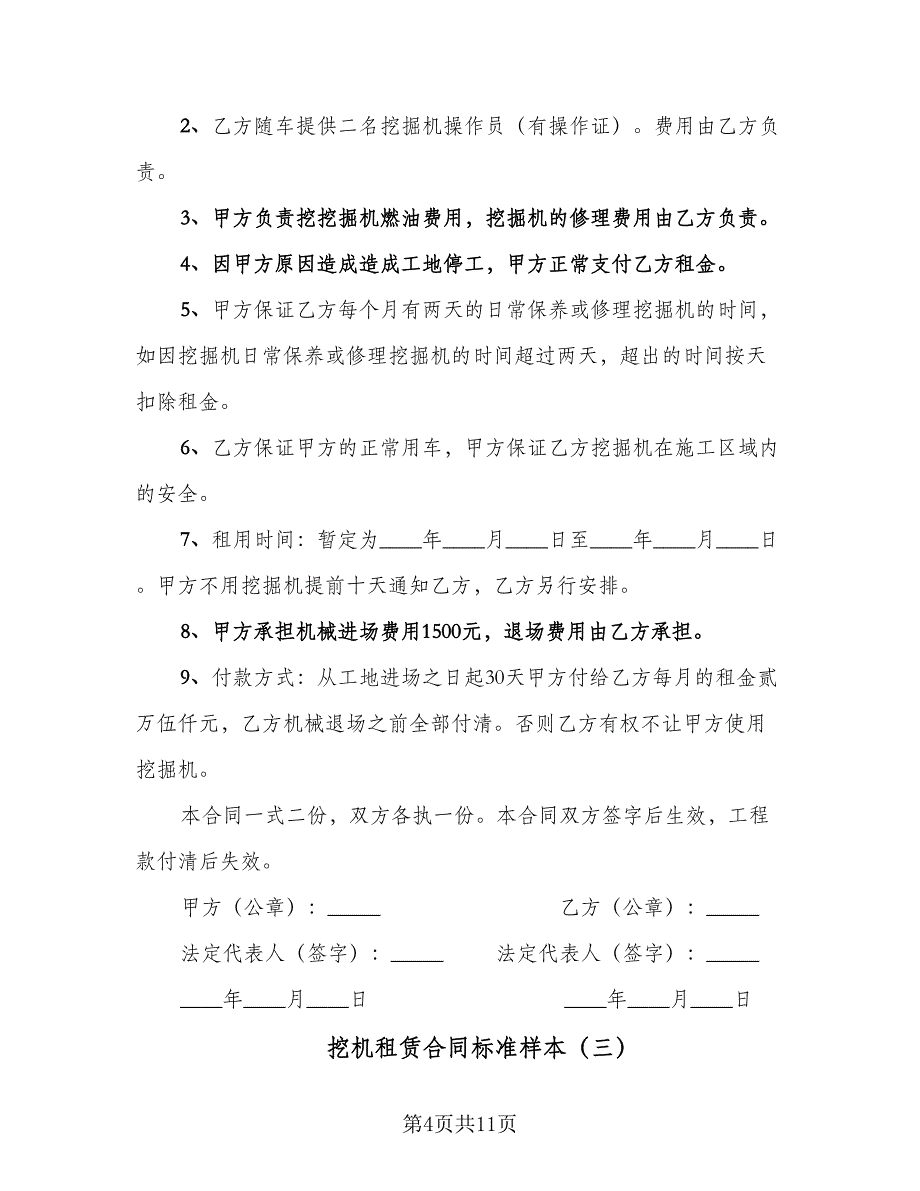 2、乙方随车提供二名挖掘机操作员（有操作证）。费用由乙方负
责。
3、甲方负责挖挖掘机燃油费用，挖掘机的修理费用由乙方负责。
4、因甲方原因造成造成工地停工，甲方正常支付乙方租金。
5、甲方保证乙方每个月有两天的日常保养或修理挖掘机的时间，
如因挖掘机日常保养或修理挖掘机的时间超过两天，超出的时间按天
扣除租金。
6、乙方保证甲方的正常用车，甲方保证乙方挖掘机在施工区域内
的安全。
7、租用时间：暂定为____年____月____日至____年____月____日
。甲方不用挖掘机提前十天通知乙方，乙方另行安排。
8、甲方承担机械进场费用1500元，退场费用由乙方承担。
9、付款方式：从工地进场之日起30天甲方付给乙方每月的租金贰
万伍仟元，乙方机械退场之前全部付清。否则乙方有权不让甲方使用
挖掘机。
本合同一式二份，双方各执一份。本合同双方签字后生效，工程
款付清后失效。
甲方（公章）：_____ 乙方（公章）：_____
法定代表人（签字）：_____ 法定代表人（签字）：_____
____年____月____日 ____年____月____日
挖机租赁合同标准样本（三）
第4页共11页